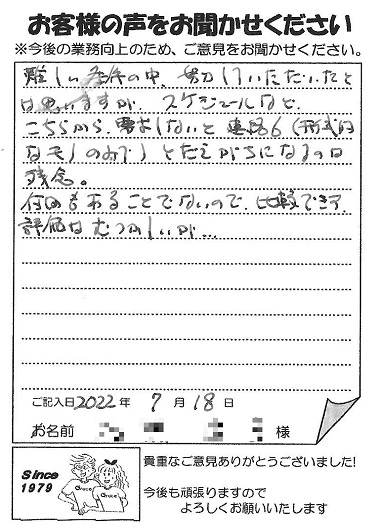 お客様の声をお聞かせください
※今後の業務向上のため、ご意見をお聞かせください。
難しい条件の中、努力していただいたと
は思いますが、スケジュールなど、
こちらから要求しないと連絡も（形式的
なモノのみで）とだえがちになるのは
残念。
何回もあることでないので、比較できず、
評価はむつかしいが…
ご記入日2022年 7月18日
お名前 様
Since
1979
Grace
Grace
貴重なご意見ありがとうございました!
今後も頑張りますので
よろしくお願いいたします